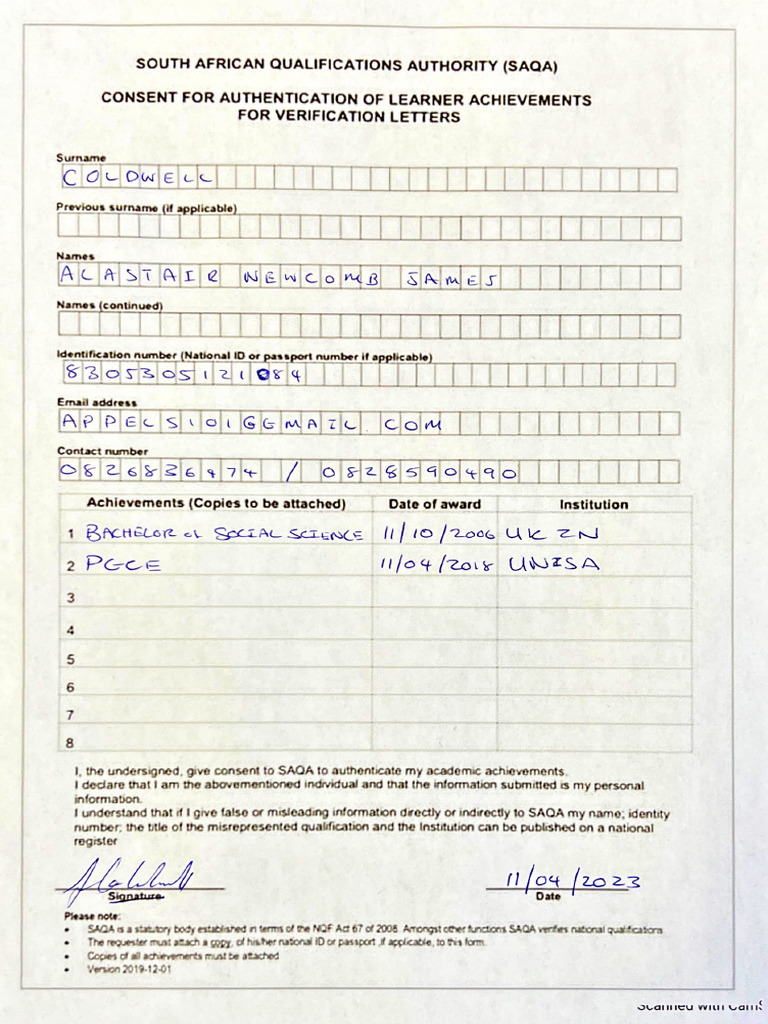 SOUTH AFRICAN QUALIFICATIONS AUTHORITY (SAQA)
CONSENT FOR AUTHENTICATION OF LEARNER ACHIEVEMENTS
FOR VERIFICATION LETTERS
Surname
COLDWELL
Previous surname (if applicable)
Names
ALASTAIR NEWCOMB JAMES
Names (continued)
Identification number (National ID or passport number if applicable)
8305305121084
Email address
APPELS101@GMAIL.COM
Contact number
0826836474 / 0828590490
Achievements (Copies to be attached) Date of award Institution
1 BACHELOR of SOCIAL SCIENCE 11/10/2006 UKZN
2 PGCE 11/04/2018 UNISA
3
4
5
6
7
8
I, the undersigned, give consent to SAQA to authenticate my academic achievements.
I declare that I am the abovementioned individual and that the information submitted is my personal
information.
I understand that if I give false or misleading information directly or indirectly to SAQA my name; identity
number; the title of the misrepresented qualification and the Institution can be published on a national
register
11/04/2023
Signature Date
Please note:
• SAQA is a statutory body established in terms of the NQF Act 67 of 2008. Amongst other functions SAQA verifies national qualifications
• The requester must attach a copy, of his/her national ID or passport ,if applicable, to this form.
• Copies of all achievements must be attached
• Version 2019-12-01
Scanned with CamS